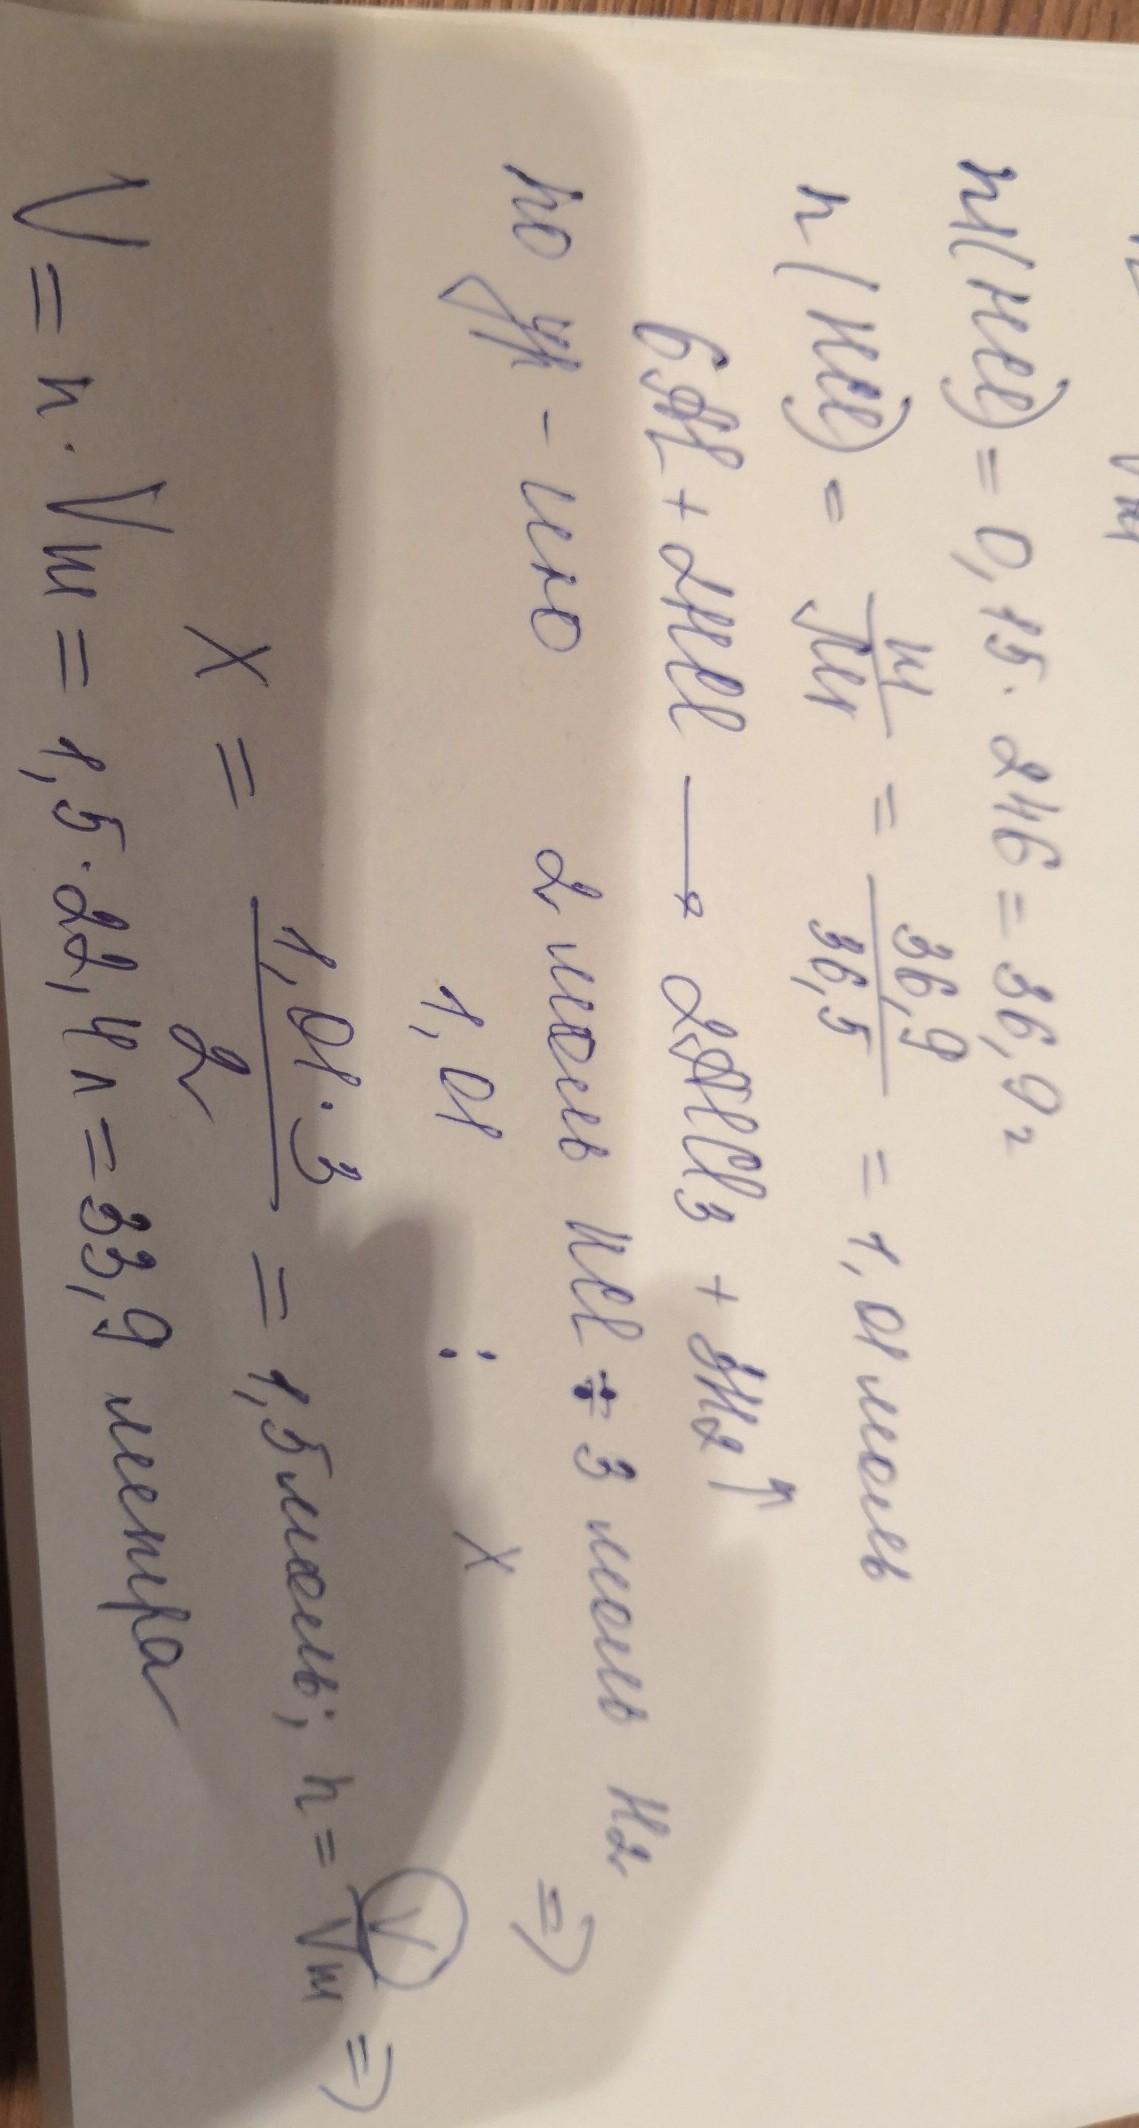 Vm
m(HCl) = 0,15 · 246 = 36,9 г
n(HCl) = m/Mr = 36,9/36,5 = 1,01 моль
6Al + 2HCl → 2AlCl3 + 3H2↑
по ур-нию 2 моль HCl ÷ 3 моль H2 =>
1,01 : x
x = 1,01·3/2 = 1,5 моль; n = V/Vm =>
V = n · Vm = 1,5 · 22,4 л = 33,9 литра